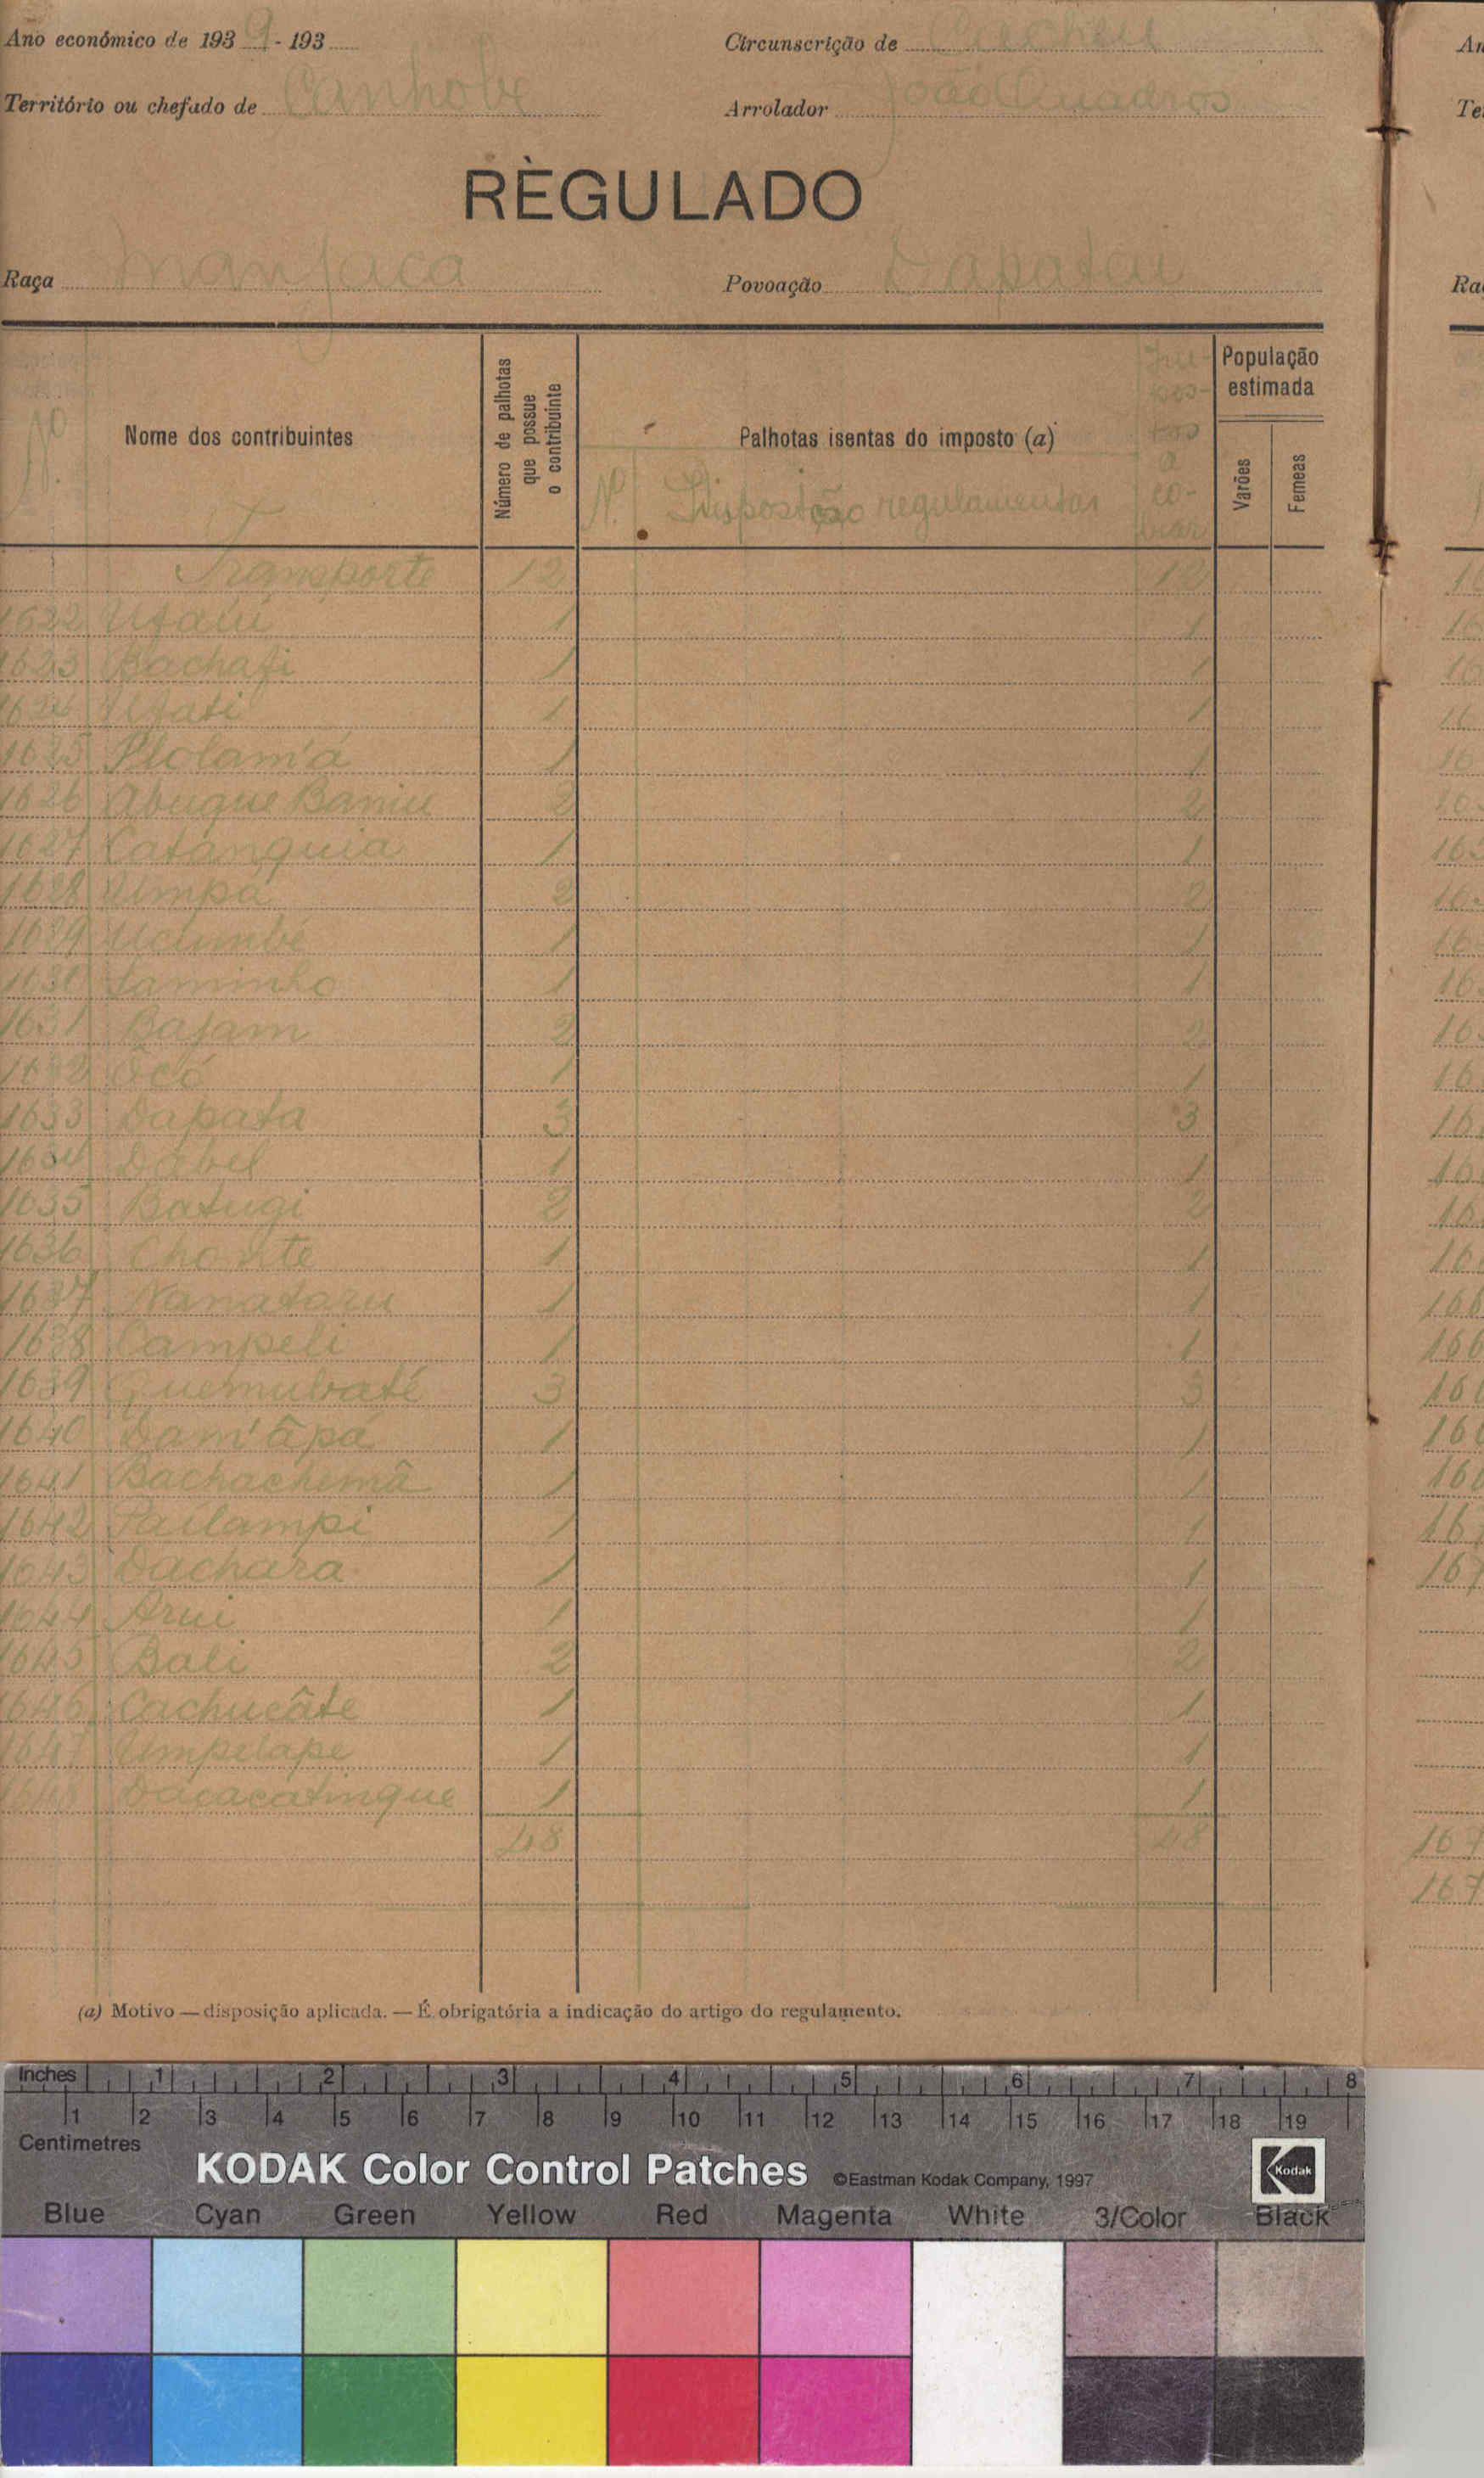 Ano económico de 1939 - 193
Circunscrição de Cacheu
Território ou chefado de Canhobe
Arrolador João Quadros
RÈGULADO
Raça Manjaca
Povoação Dapatar
Nº
Nome dos contribuintes
Número de palhotas que possue o contribuinte
Palhotas isentas do imposto (a)
Nº Disposição regulamentar
Impostos a cobrar
População estimada
Varões
Femeas
Transporte 12 12
1622 1 1
1623 Bachafi 1 1
1624 1 1
1625 Plolam'á 1 1
1626 Abuque Baniu 2 2
1627 Catánguia 1 1
1628 Umpá 2 2
1629 Ucumbé 1 1
1630 Saminho 1 1
1631 Bajam 2 2
1632 Ôcó 1 1
1633 Dapata 3 3
1634 Dabel 1 1
1635 Batugi 2 2
1636 1 1
1637 Nanataru 1 1
1638 Campeli 1 1
1639 Quemubaté 3 3
1640 Dam'âpá 1 1
1641 Bachachemâ 1 1
1642 Pailampi 1 1
1643 Dachara 1 1
1644 Arui 1 1
1645 Bali 2 2
1646 Cachucâte 1 1
1647 Umpelape 1 1
1648 Dacacatinque 1 1
48 48
(a) Motivo — disposição aplicada. — É obrigatória a indicação do artigo do regulamento.
Inches 1 2 3 4 5 6 7 8
1 2 3 4 5 6 7 8 9 10 11 12 13 14 15 16 17 18 19
Centimetres
KODAK Color Control Patches ©Eastman Kodak Company, 1997 Kodak
Blue Cyan Green Yellow Red Magenta White 3/Color Black